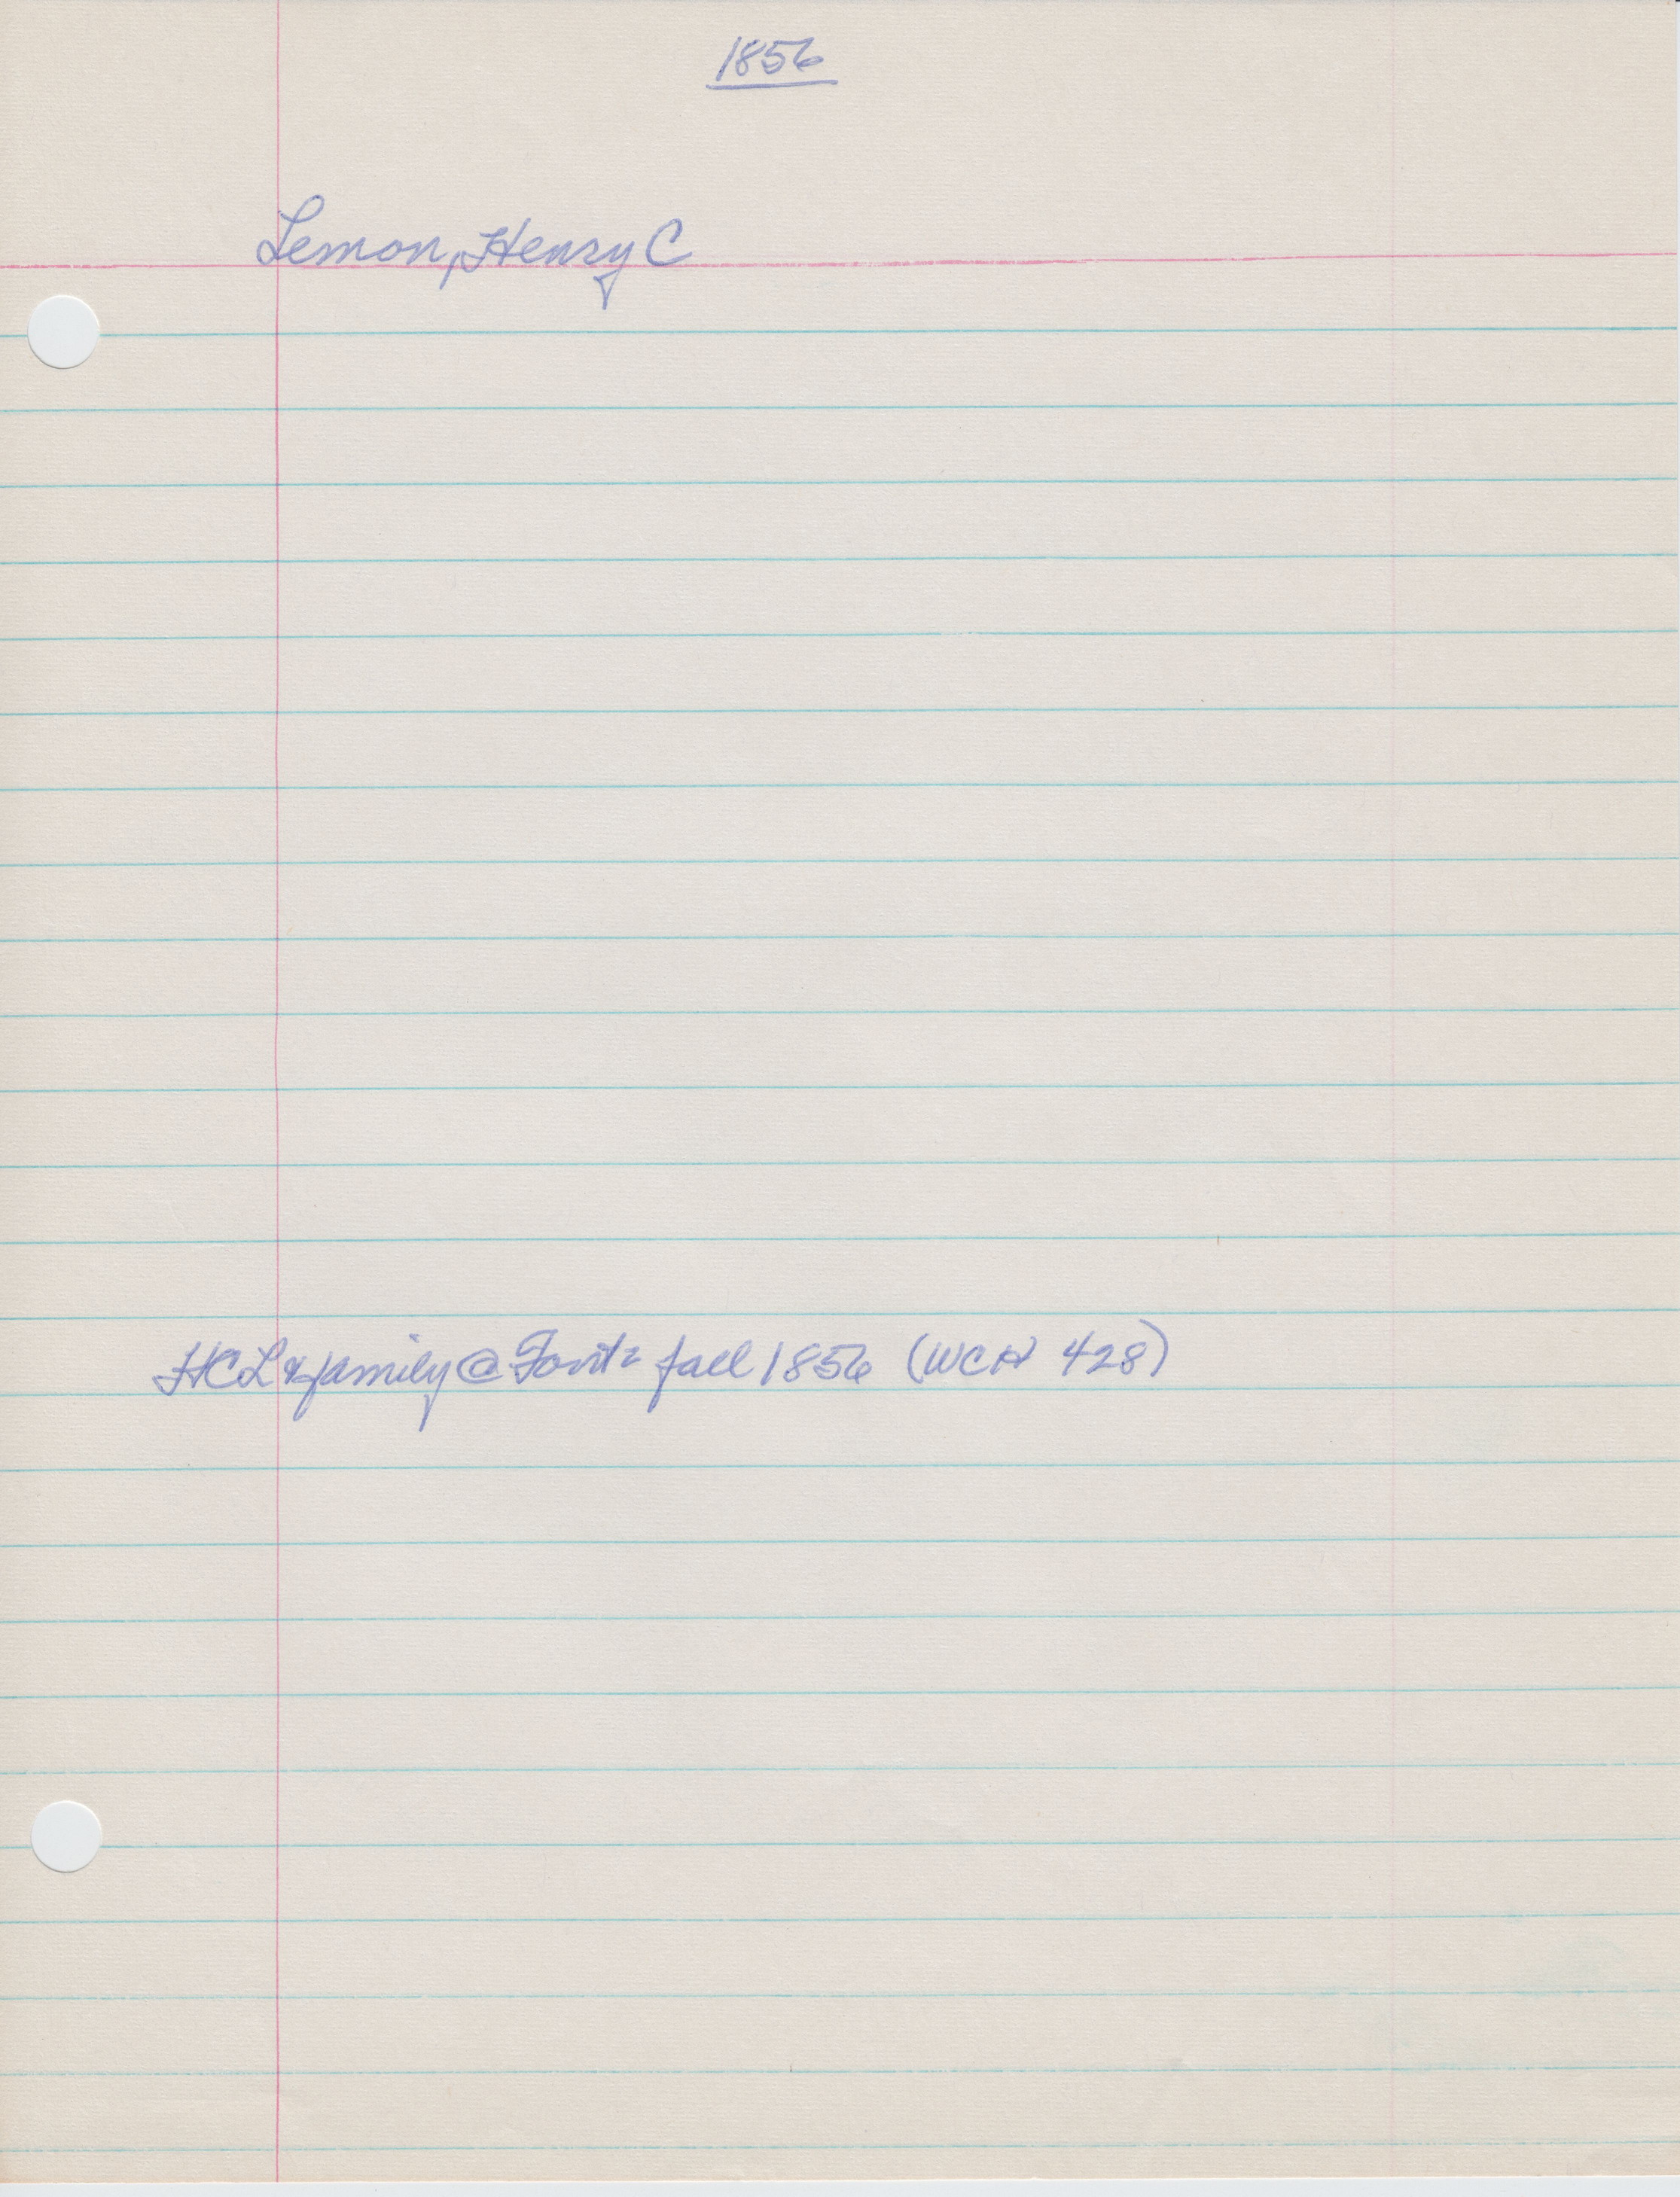 1856
Lemon, Henry C
HCL & family @ fall 1856 (WCH 428)